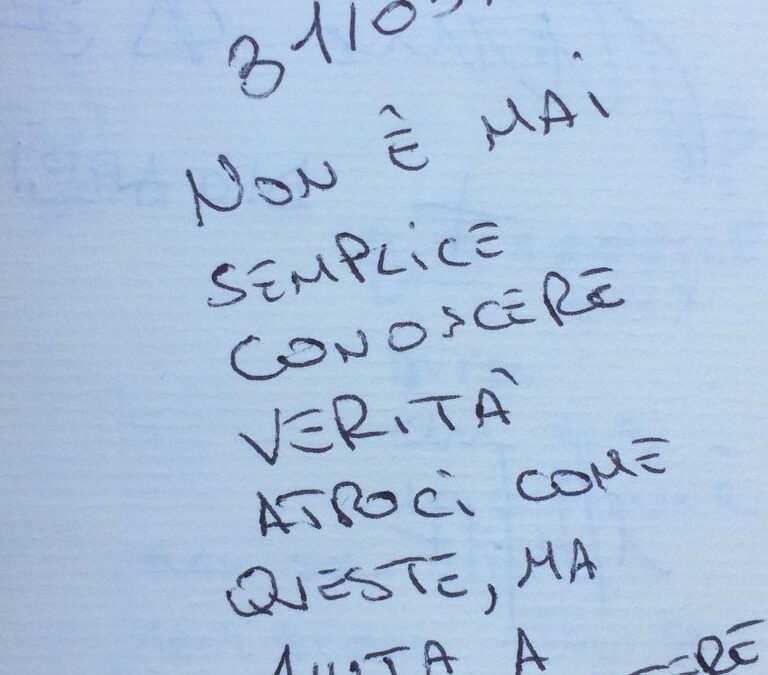 31/03
NON È MAI
SEMPLICE
CONOSCERE
VERITÀ
ATROCI COME
QUESTE, MA
AIUTA A